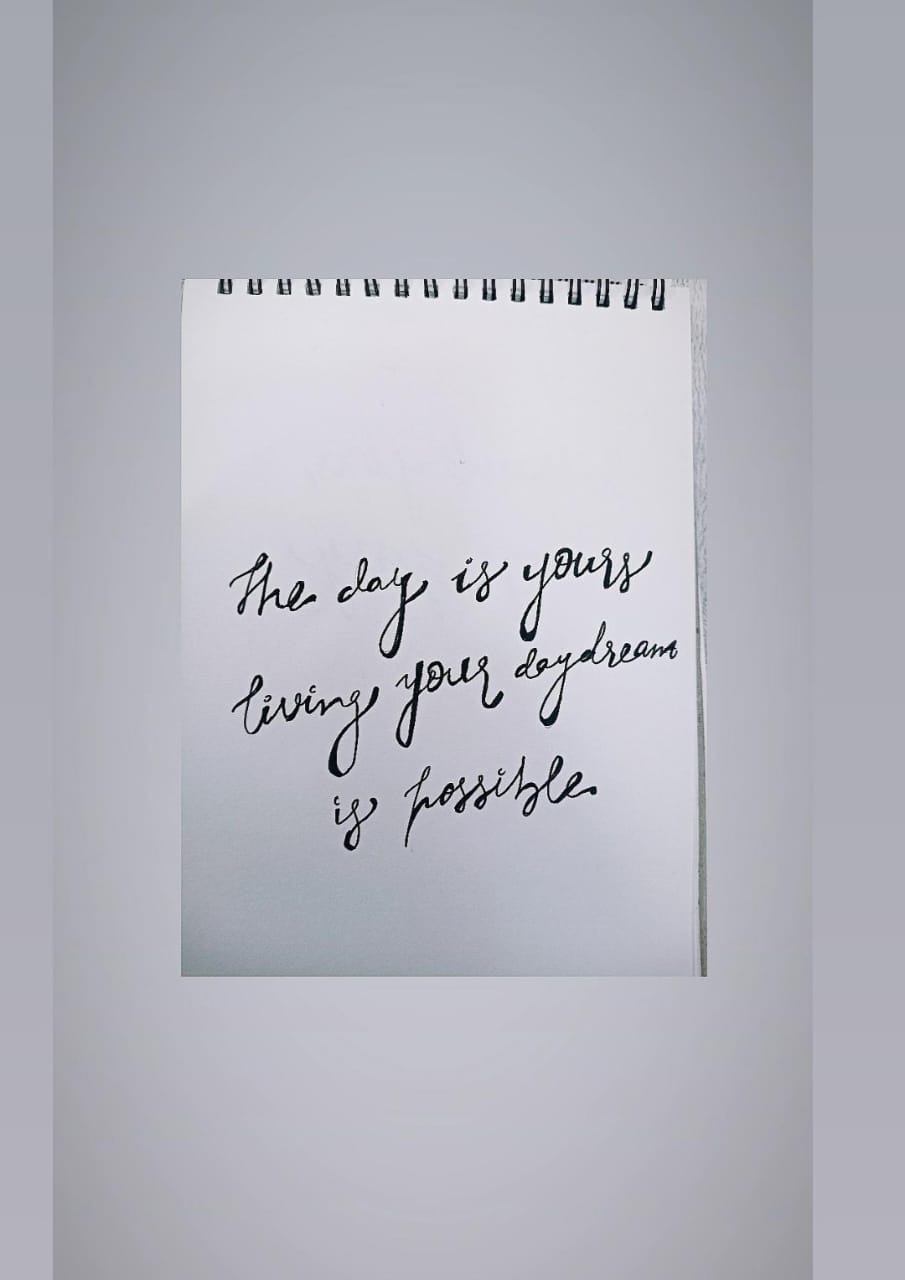 The day is yours
living your daydream
is possible.